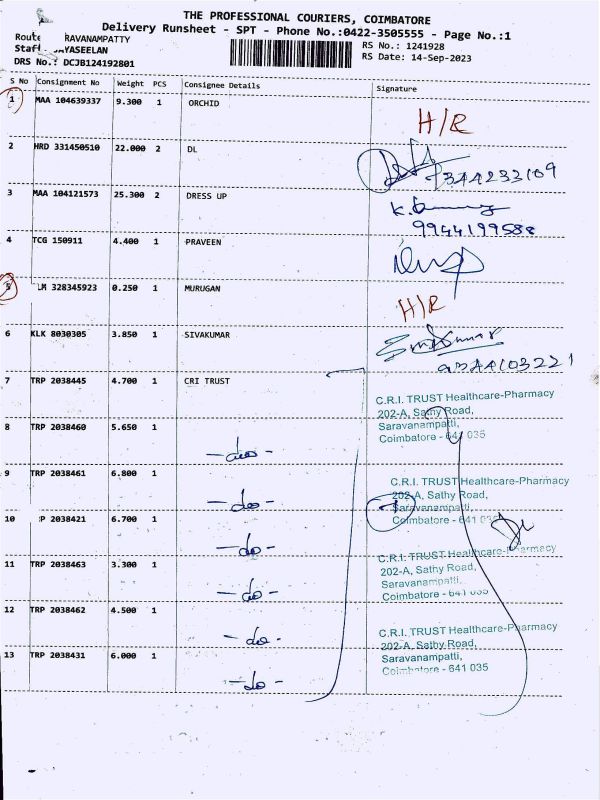 THE PROFESSIONAL COURIERS, COIMBATORE
Delivery Runsheet - SPT - Phone No.:0422-3505555 - Page No.:1
Route RAVANAMPATTY
Staf YASEELAN
DRS No.: DCJB124192801
RS No.: 1241928
RS Date: 14-Sep-2023
S No Consignment No Weight PCS Consignee Details Signature
1 MAA 104639337 9.300 1 ORCHID H/R
2 HRD 331450510 22.000 2 DL
3 MAA 104121573 25.300 2 DRESS UP K.
9944199588
4 TCG 150911 4.400 1 PRAVEEN
5 LM 328345923 0.250 1 MURUGAN H/R
6 KLK 8030305 3.850 1 SIVAKUMAR
9344103221
7 TRP 2038445 4.700 1 CRI TRUST
C.R.I. TRUST Healthcare-Pharmacy
202-A, Sathy Road,
Saravanampatti,
Coimbatore - 641 035
8 TRP 2038460 5.650 1 -do-
9 TRP 2038461 6.800 1 -do-
C.R.I. TRUST Healthcare-Pharmacy
202-A, Sathy Road,
Saravanampatti,
Coimbatore - 641 035
10 P 2038421 6.700 1 -do-
11 TRP 2038463 3.300 1 -do-
C.R.I. TRUST Healthcare-Pharmacy
202-A, Sathy Road,
Saravanampatti,
Coimbatore - 641 035
12 TRP 2038462 4.500 1 -do-
13 TRP 2038431 6.000 1 -do-
C.R.I. TRUST Healthcare-Pharmacy
202-A, Sathy Road,
Saravanampatti,
Coimbatore - 641 035